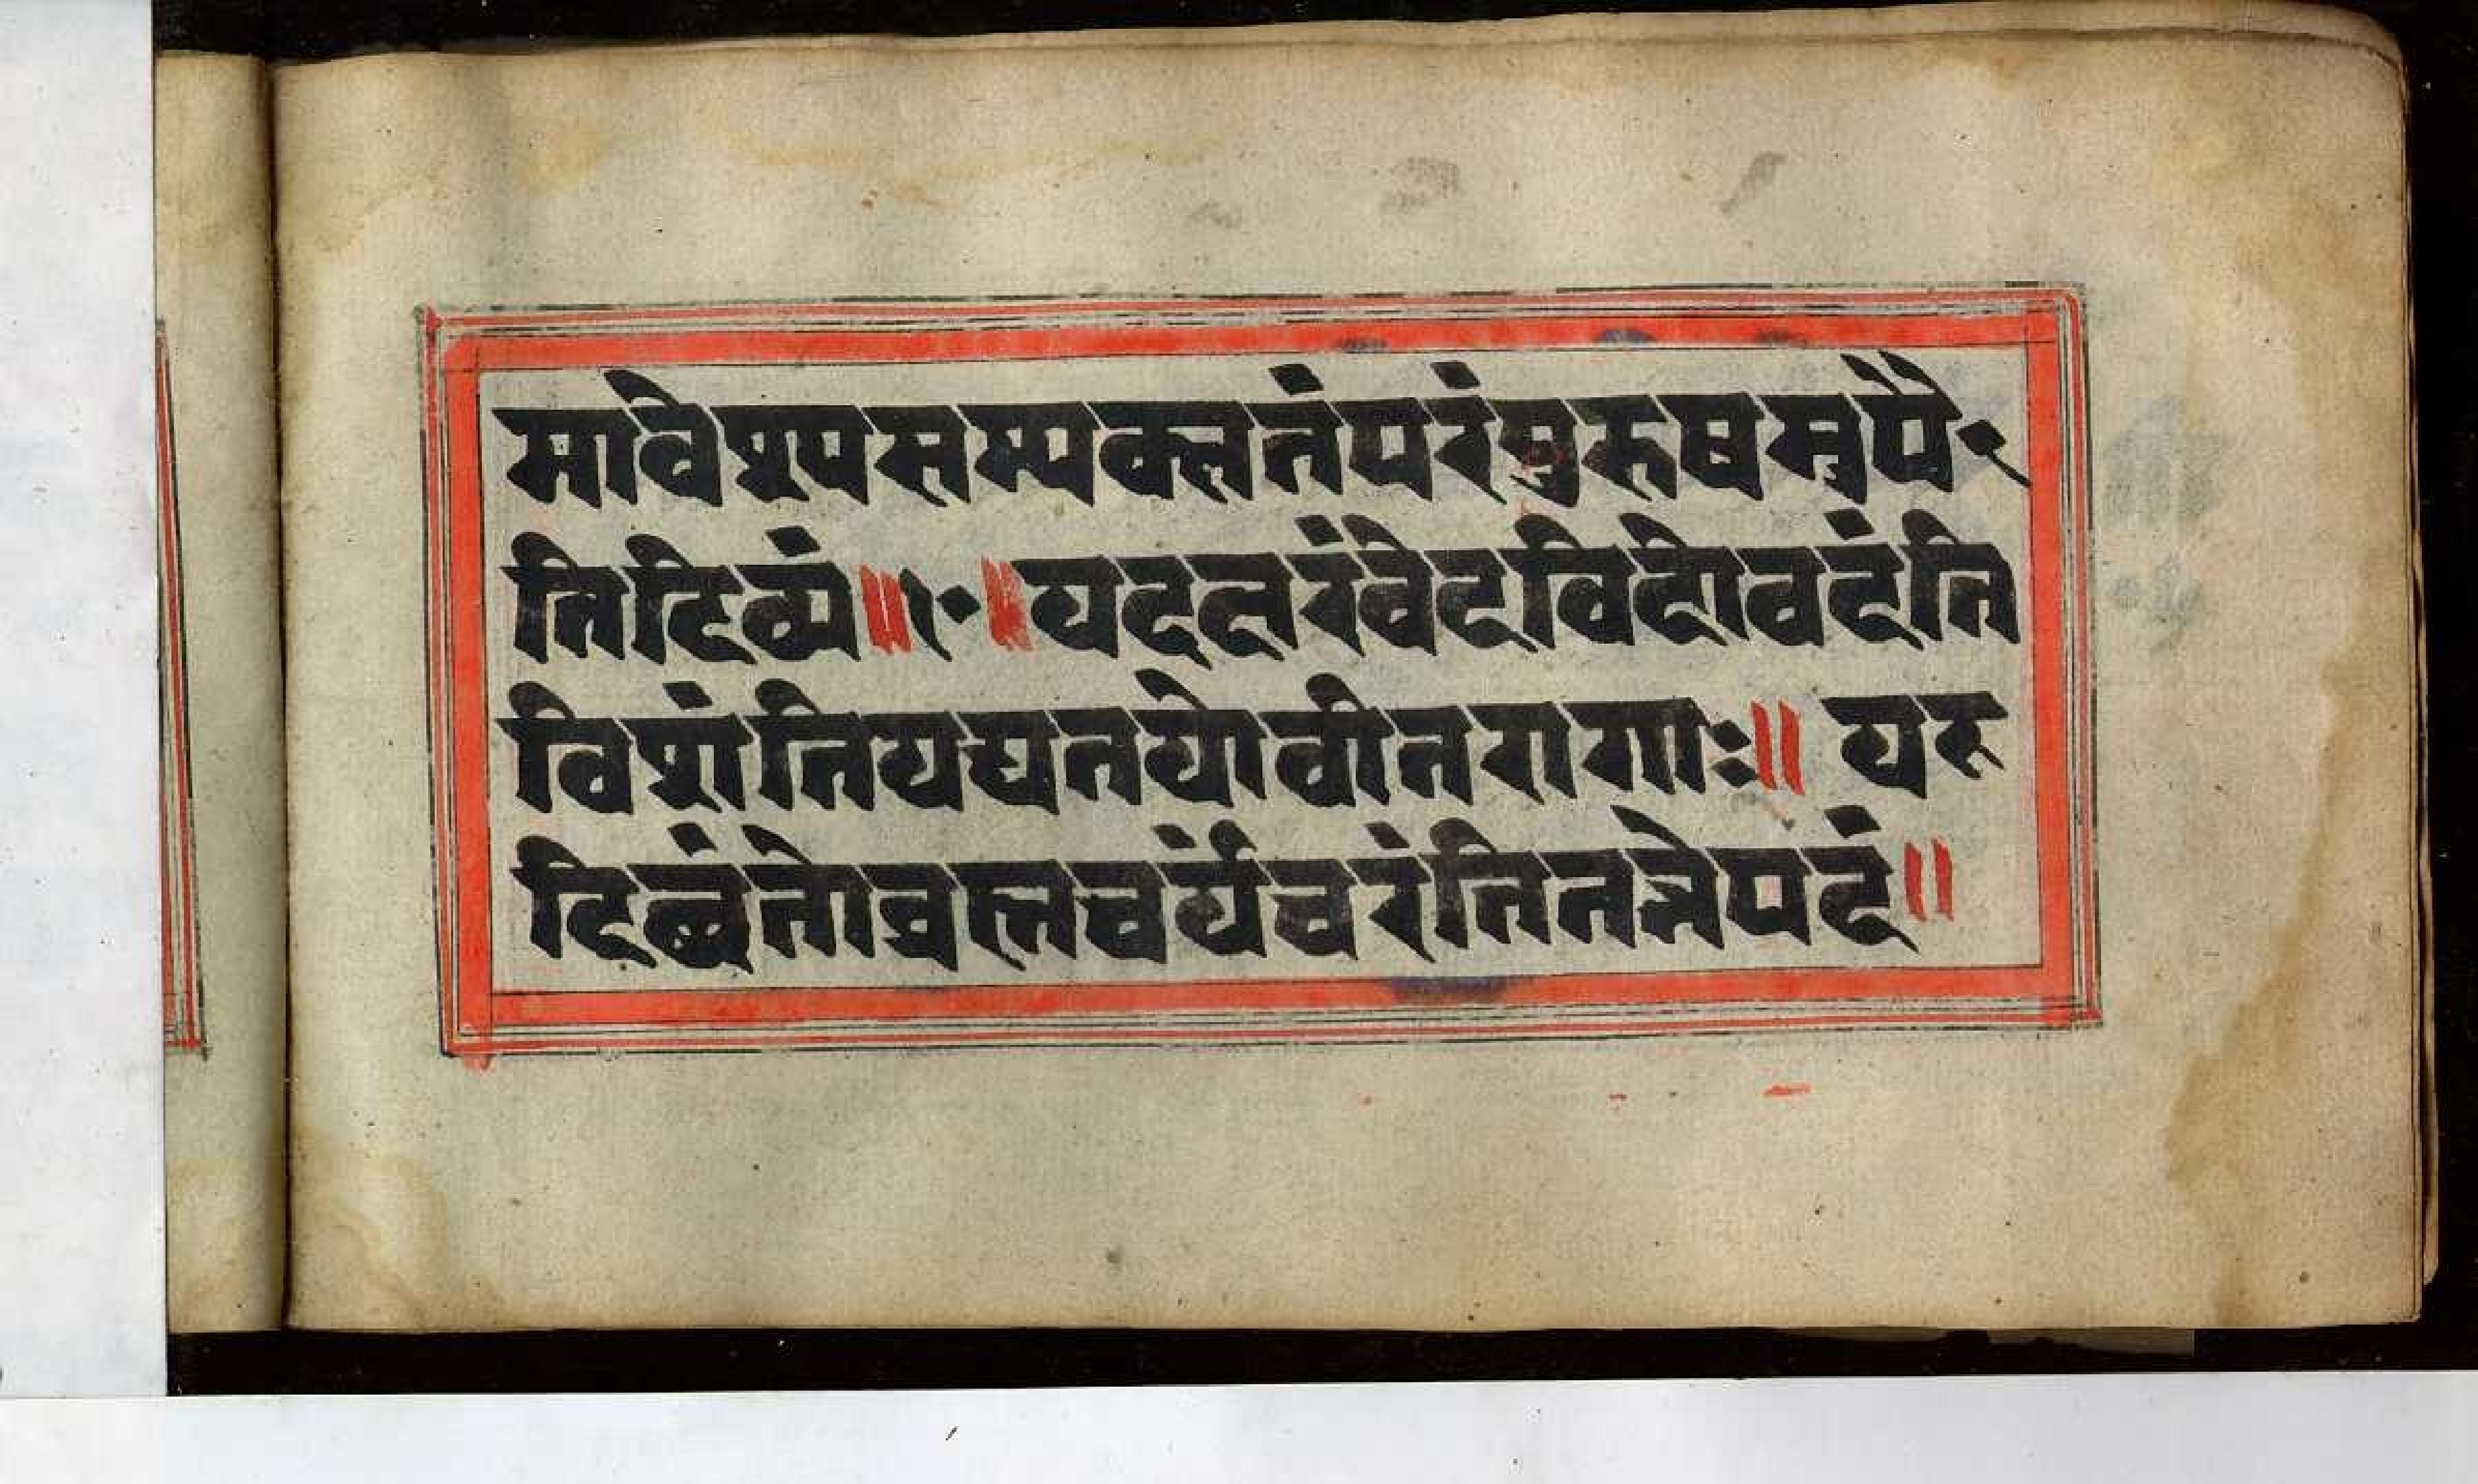 मावेश्यसम्यक्सतंपरंपुरुषमुपै-
तिदिव्यं॥१०॥यदक्षरंवेदविदोवदंति
विशंतियद्यतयोवीतरागाः॥यद
दिछंतोब्रह्मचर्यंचरंतितत्तेपदं॥